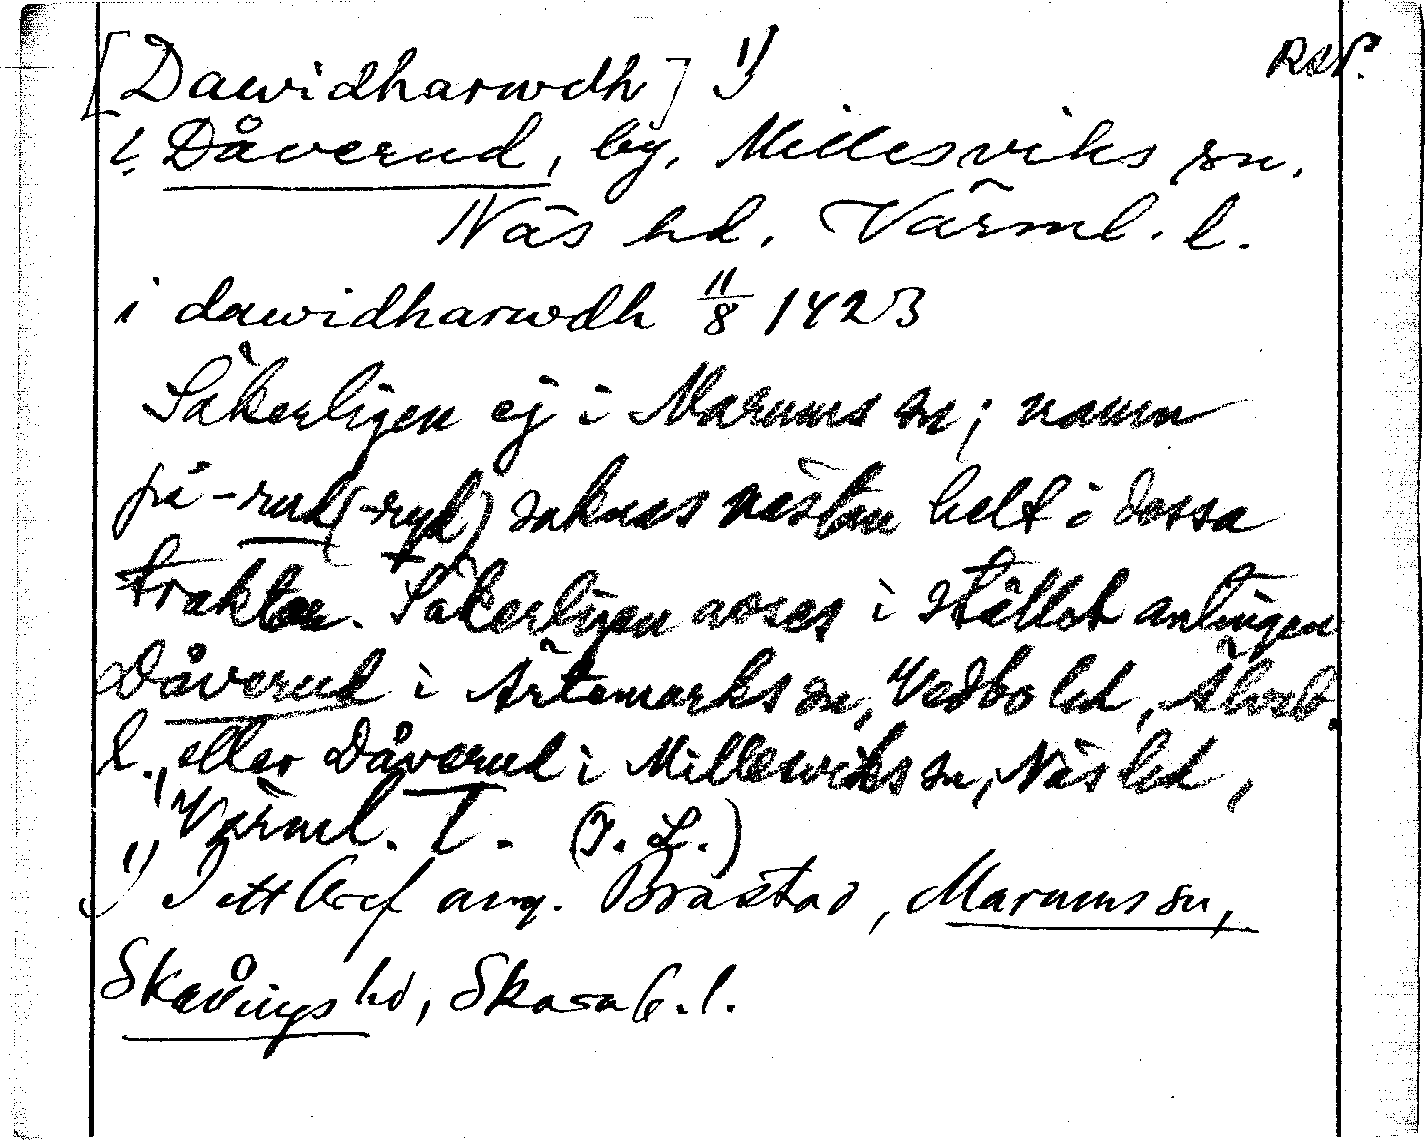 [Dawidharwdh] 1) RAP.
l. Dåverud, by, Millesviks sn.
Näs hd. Värml. l.
i dawidharwdh 11/8 1423
Säkerligen ej i Marums sn; namn
på -rud (-ryd) saknas nästan helt i dessa
trakter. Säkerligen avses i stället antingen
Dåverud i Ärtemarks sn, Vedbo hd, Älvsb.
l., eller Dåverud i Millesviks sn, Näs hd,
Värml. l. (I. L.)
1) I ett bref ang. Brastad, Marums sn,
Skånings hd, Skarab. l.